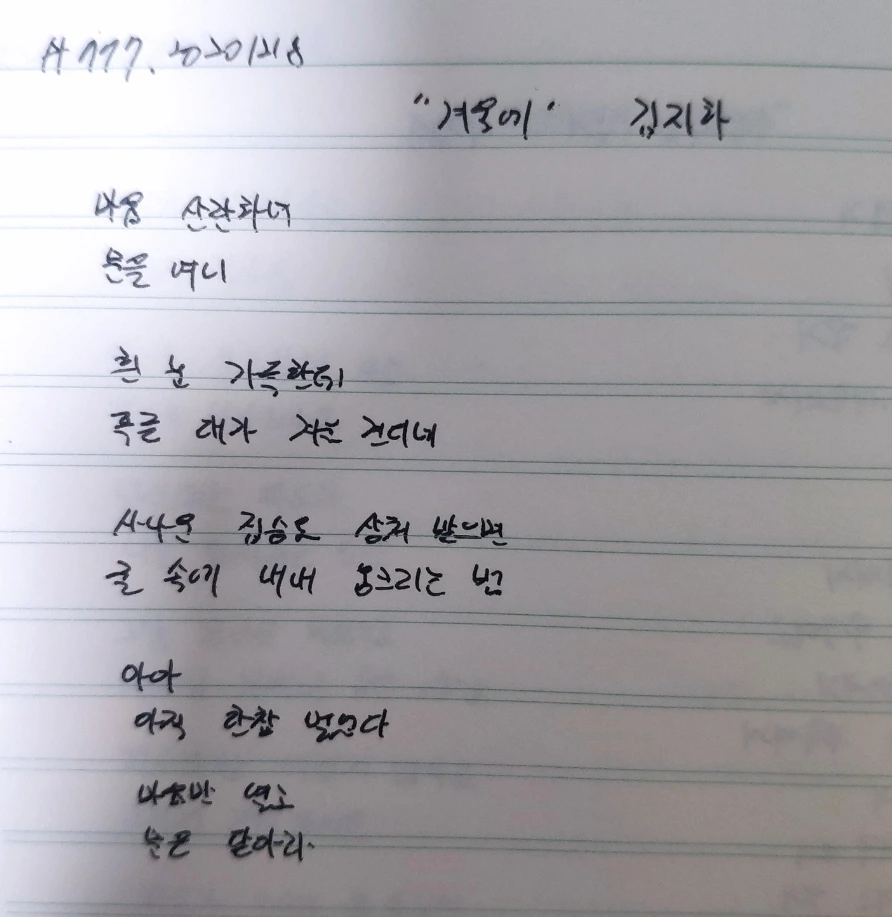 # 777. 20201218
"겨울에" 김지하
마음 산란하여
문을 여니
흰 눈 가득한데
푸른 대가 겨울 견디네
사나운 짐승도 상처 받으면
굴 속에 내내 웅크리는 법
아아
아직 한참 멀었다
마음만 열고
문은 닫아라.